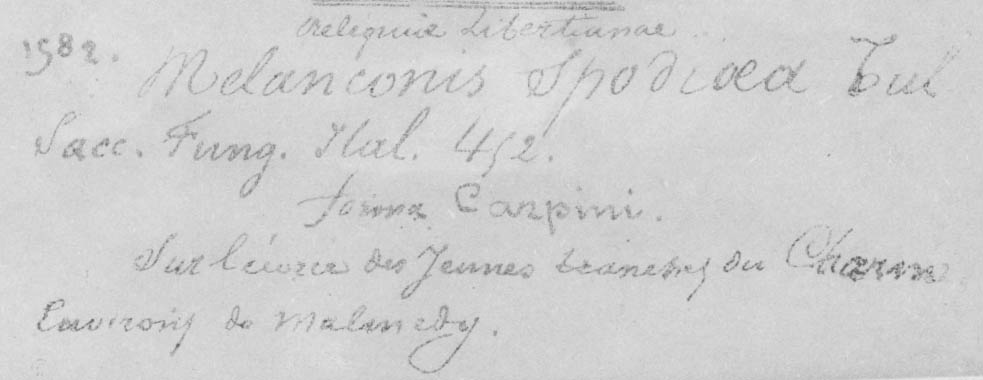 Reliquiae Libertianae..
1582. Melanconis Spodiaea Tul
Sacc. Fung. Ital. 452.
forma Carpini.
Sur l'écorce des Jeunes branches du Charme
Environs de Malmedy.